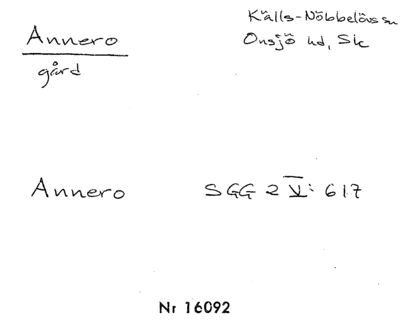 Annero
gård
Källs-Nöbbelövs sn
Onsjö hd, Sk
Annero SGG 2 V: 617
Nr 16092